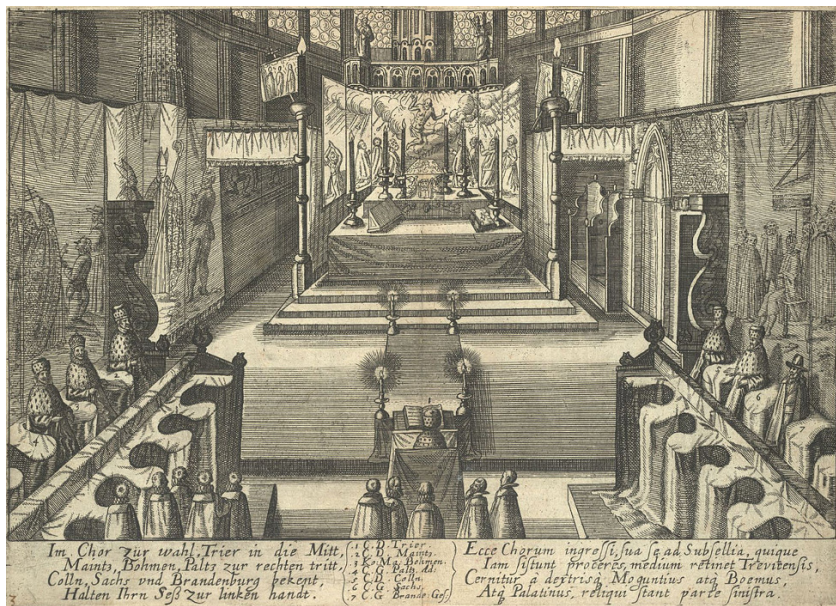 Im Chor zur wahl, Trier in die Mitt,
Maintz, Böhmen, Paltz zur rechten tritt,
Colln, Sachs vnd Brandenburg bekent,
Halten Ihrn Seß zur linken handt.
3.
1 C.D. Trier.
2 C.D. Maintz.
3 Ko. Ma. Böhmen.
4 C.G. Paltz.
5 C.D. Colln.
6 C.G. Sachs.
7 C.G. Brande: Ges.
Ecce Chorum ingressi, sua se ad Subsellia, quique
Iam sistunt proceres, medium retinet Trevirensis,
Cernitur á dextris Moguntius atq Boemus,
Atq Palatinus, reliqui stant parte sinistra.
1
2
3
4
6
7